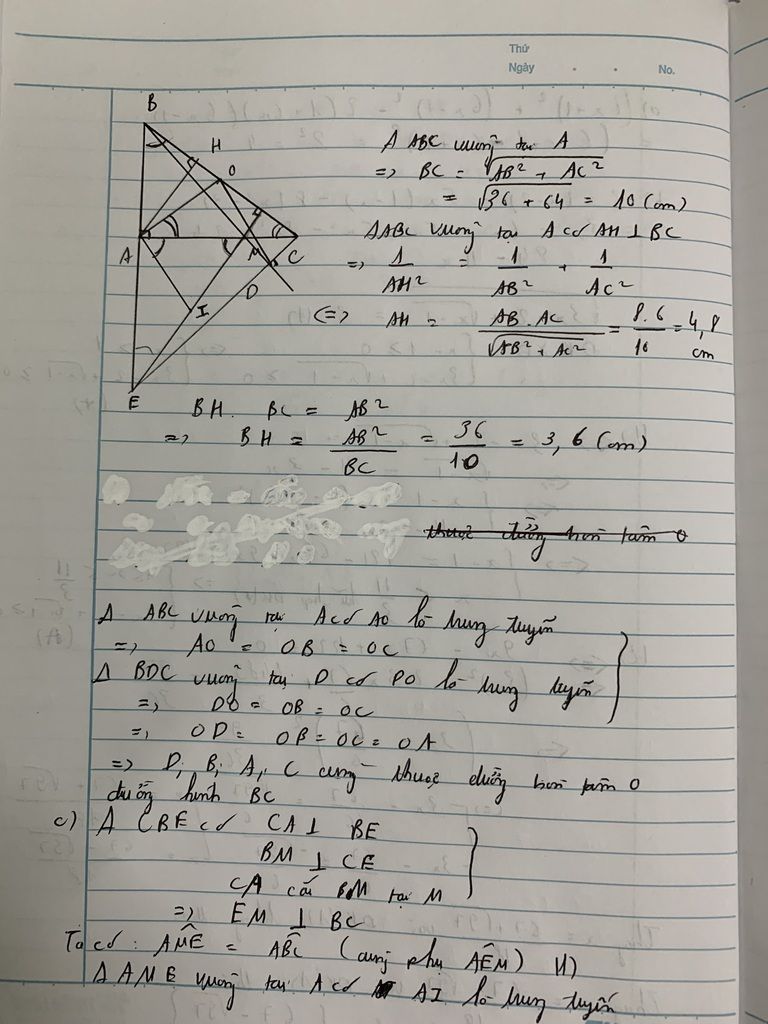 Thứ
Ngày . . No.
B
H
O
A
M
C
D
I
E
Δ ABC vuông tại A
=> BC = √AB² + AC²
= √36 + 64 = 10 (cm)
ΔABC vuông tại A có AH ⊥ BC
=> 1/AH² = 1/AB² + 1/AC²
<=> AH = AB.AC/√AB² + AC² = 8.6/10 = 4,8 cm
BH. BC = AB²
=> BH = AB²/BC = 36/10 = 3,6 (cm)
thuộc đường tròn tâm O
Δ ABC vuông tại A có AO là trung tuyến
=> AO = OB = OC
Δ BDC vuông tại D có DO là trung tuyến
=> DO = OB = OC
=> OD = OB = OC = OA
=> D, B, A, C cùng thuộc đường tròn tâm O
đường kính BC
c) Δ CBE có CA ⊥ BE
BM ⊥ CE
CA cắt BM tại M
=> EM ⊥ BC
Ta có: AM̂E = AB̂C (cùng phụ AÊM) (1)
Δ AME vuông tại A có AI là trung tuyến